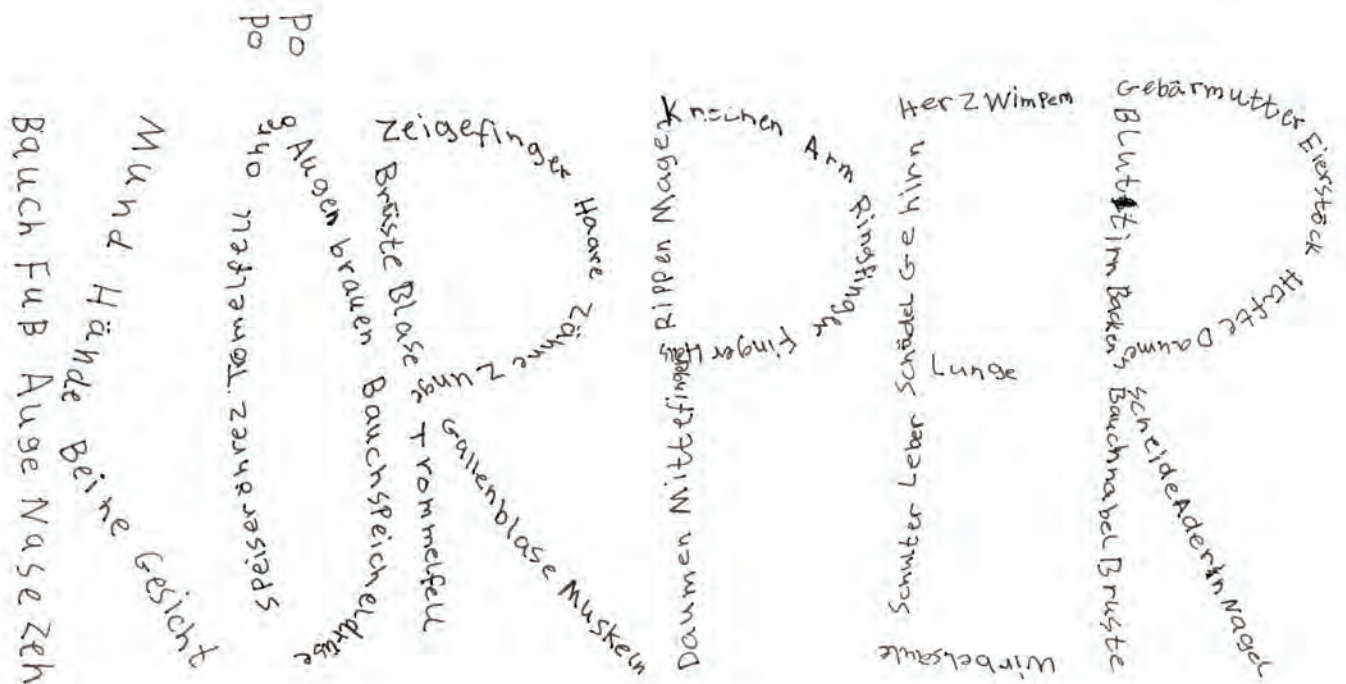 Bauch Fuß Auge Nase Zeh
Mund Hände
Beine Gesicht
Po
Po
Augenbrauen Bauchspeicheldrüse
Zeigefinger Haare Zähne Zunge
Brüste Blase Trommelfell
Gallenblase Muskeln
Knochen Arm Ringfinger Finger Hals
Rippen Magen
Herz Wimpern
Schulter Leber Schädel Gehirn
Lunge
Wirbelsäule
Gebärmutter Eierstöck Hüfte Daume
Blut Stirn Backen Bauchnabel Brüste
Scheide Adern Nagel